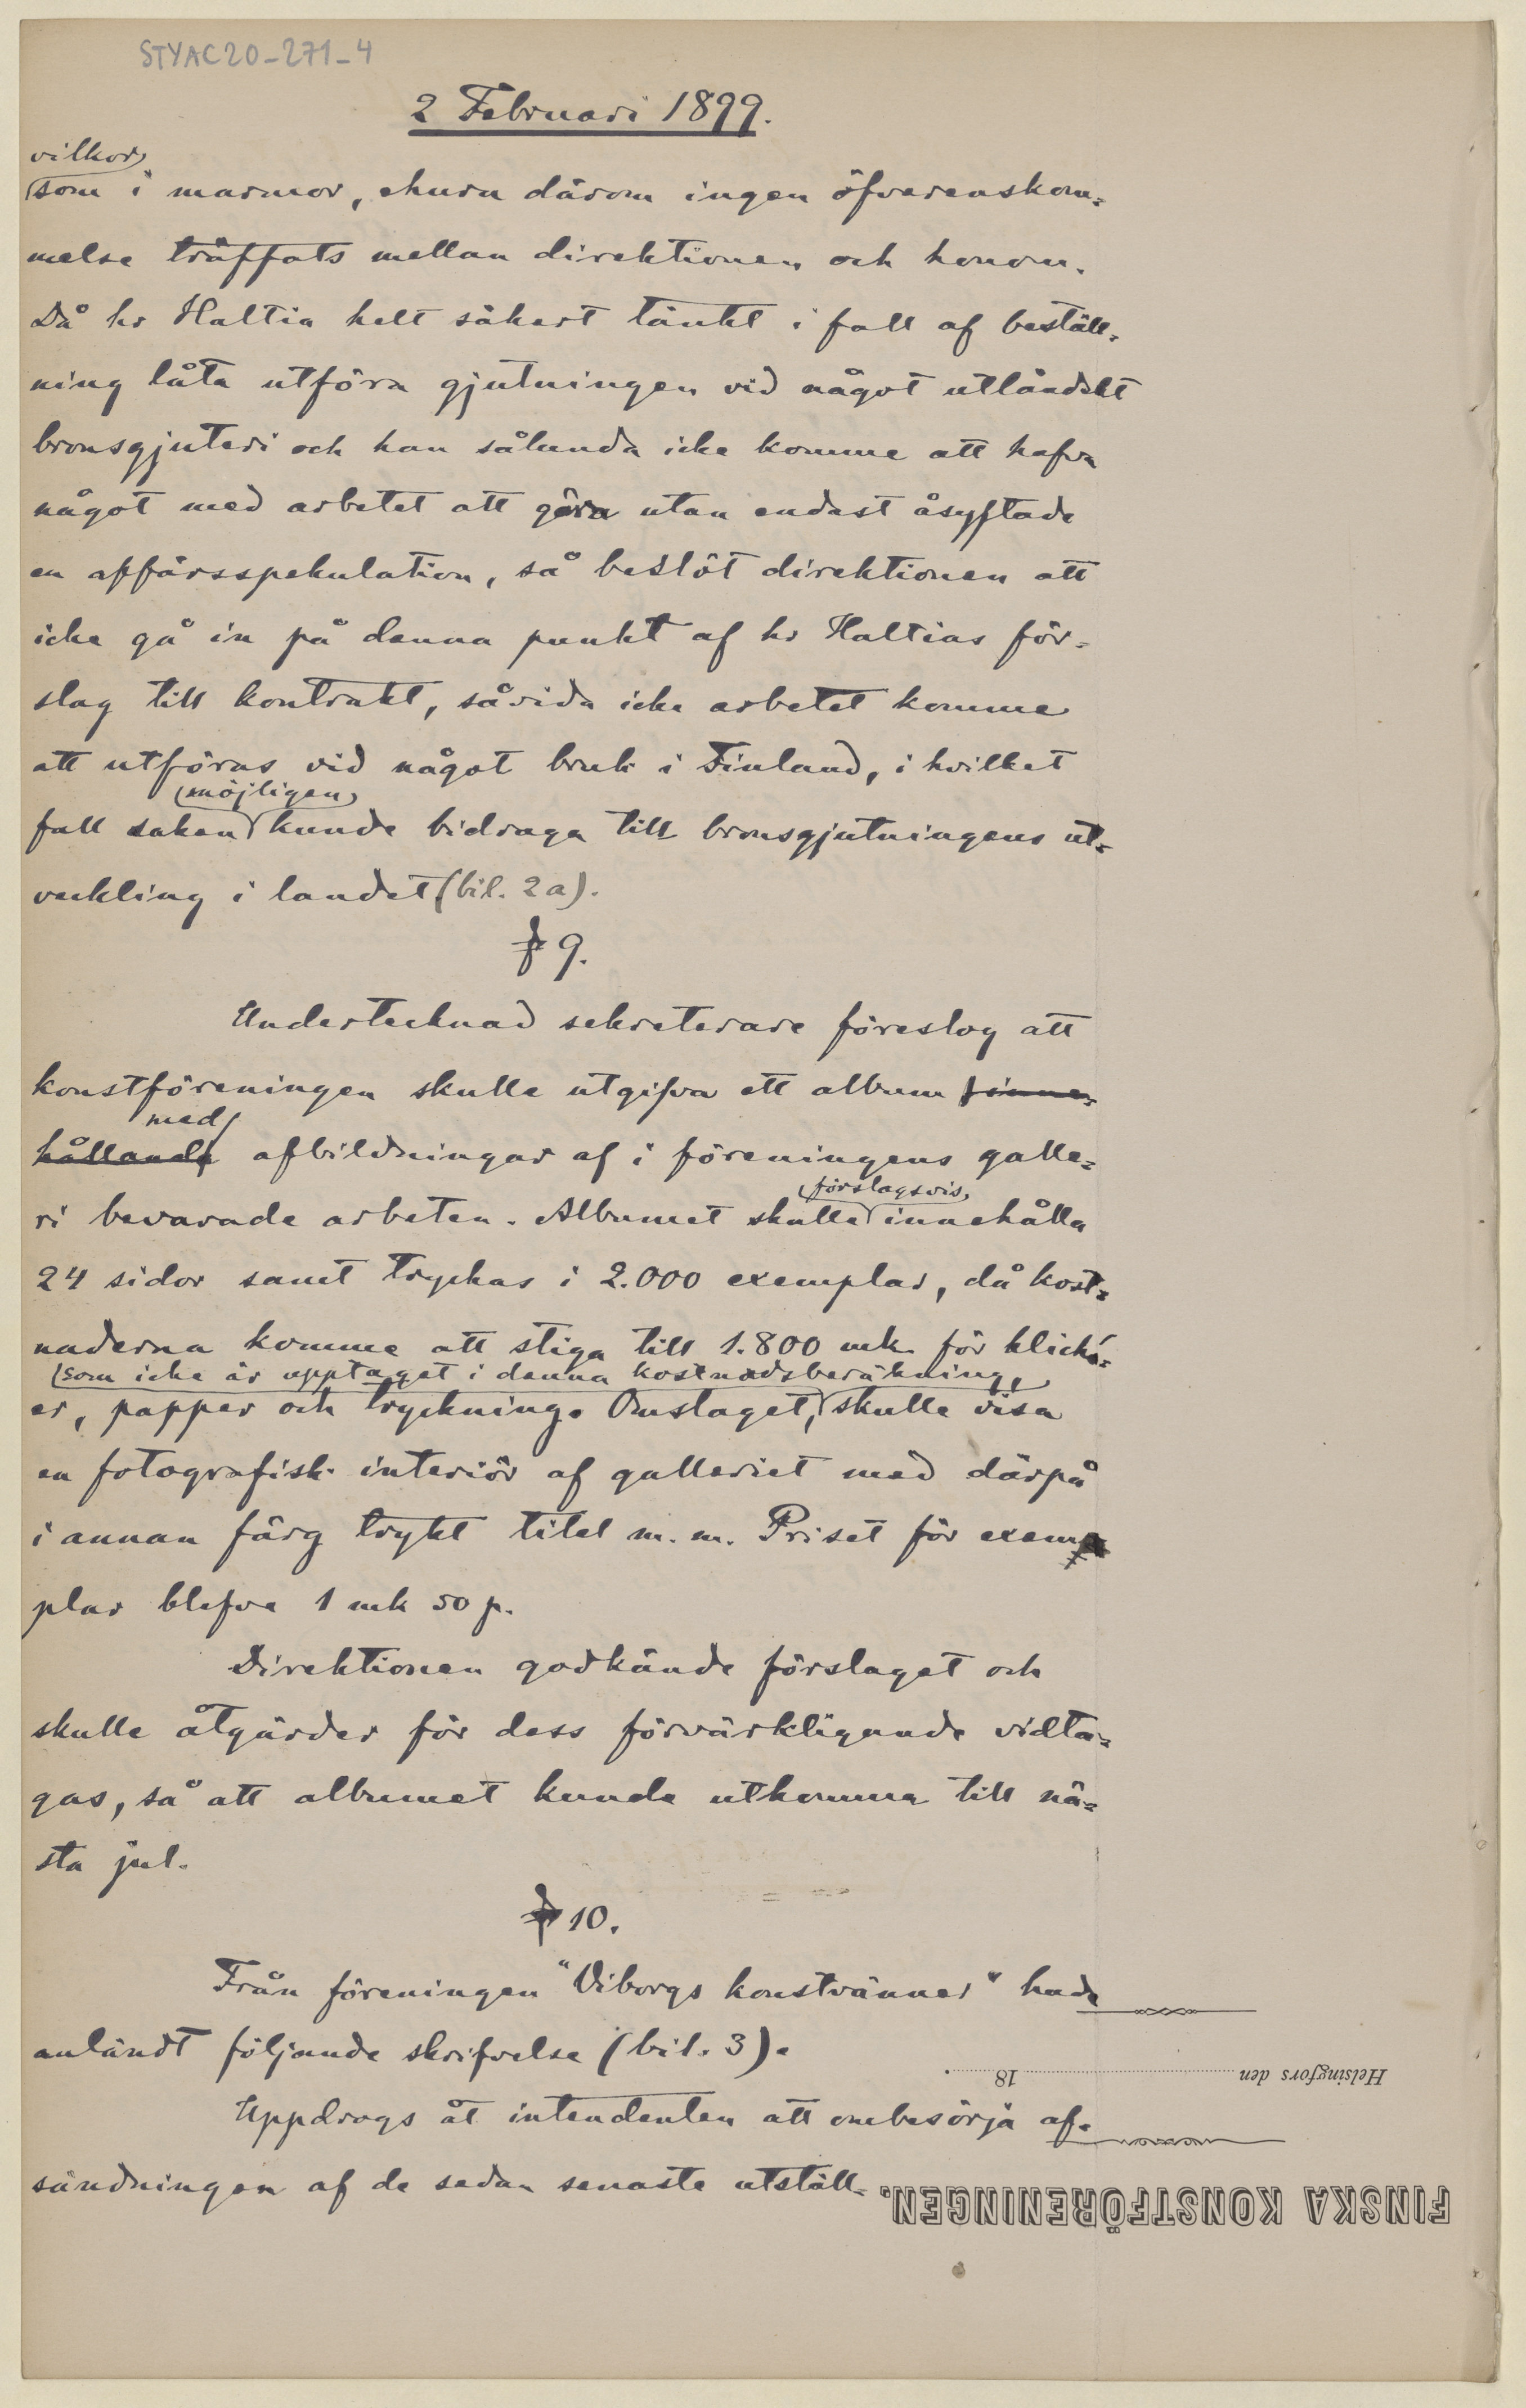 STYAC20-271-4
2 Februari 1899.
vilkor
som i marmor, ehuru därom ingen öfverenskom-
melse träffats mellan direktionen och honom.
Då hr Haltia helt säkert tänkt i fall af beställ-
ning låta utföra gjutningen vid något utländskt
bronsgjuteri och han sålunda icke komme att hafva
något med arbetet att göra utan endast åsyftade
en affärsspekulation, så beslöt direktionen att
icke gå in på denna punkt af hr Haltias för-
slag till kontrakt, såvida icke arbetet komme
att utföras vid något bruk i Finland, i hvilket
möjligen
fall saken kunde bidraga till bronsgjutningens ut-
veckling i landet (bil. 2a).
§ 9.
Undertecknad sekreterare föreslog att
konstföreningen skulle utgifva ett album inne-
med
hållande afbildningar af i föreningens galle-
förslagsvis
ri bevarade arbeten. Albumet skulle innehålla
24 sidor samt tryckas i 2.000 exemplar, då kost-
naderna komme att stiga till 1.800 mk för kliché-
som icke är upptaget i denna kostnadsberäkning,
er, papper och tryckning. Omslaget, skulle visa
en fotografisk interiör af galleriet med därpå
i annan färg trykt titel m. m. Priset för exem-
plar blefve 1 mk 50 p.
Direktionen godkände förslaget och
skulle åtgärder för dess förvärkligande vidta-
gas, så att albumet kunde utkomma till nä-
sta jul.
§ 10.
Från föreningen "Viborgs konstvänner" hade
anländt följande skrifvelse (bil. 3).
Helsingfors den 18 .
Uppdrogs åt intendenten att ombesörja af-
sändningen af de sedan senaste utställ-
FINSKA KONSTFÖRENINGEN.